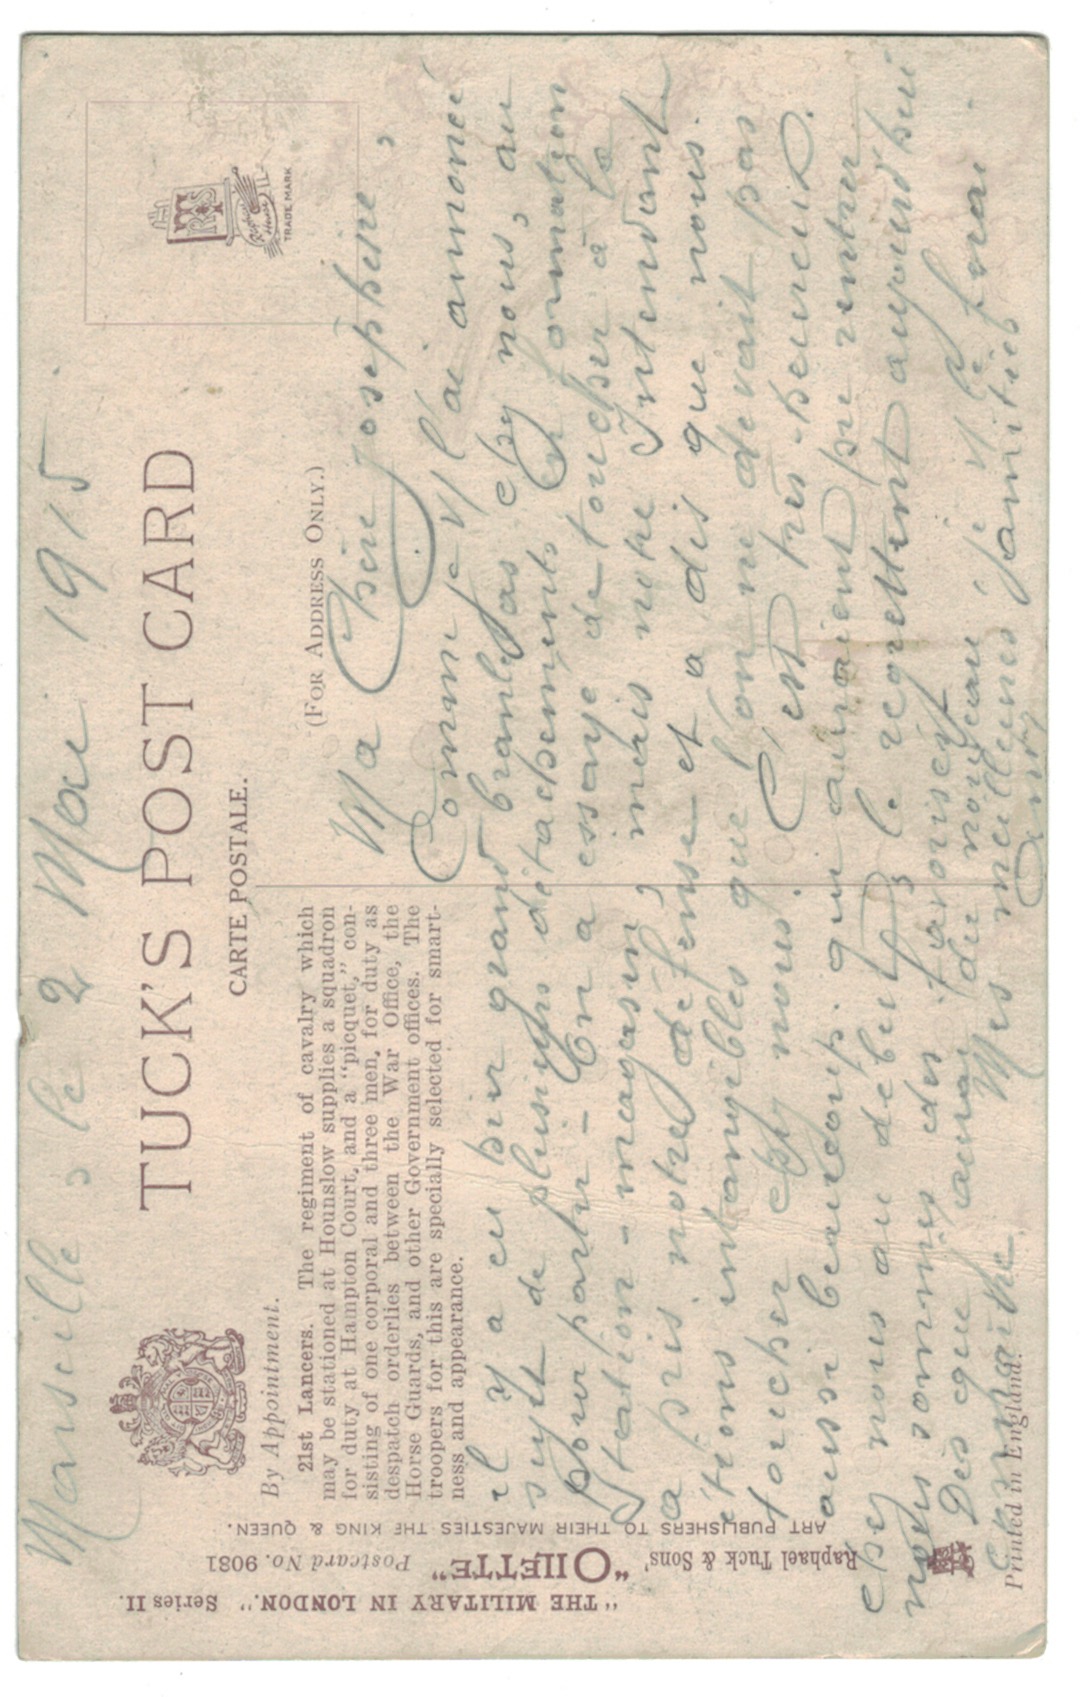 Marseille, le 2 Mai 1915
TUCK'S POST CARD
CARTE POSTALE.
(FOR ADDRESS ONLY.)
TRADE MARK
By Appointment.
21st Lancers. The regiment of cavalry which
may be stationed at Hounslow supplies a squadron
for duty at Hampton Court, and a "picquet," con-
sisting of one corporal and three men, for duty as
despatch orderlies between the War Office, the
Horse Guards, and other Government offices. The
troopers for this are specially selected for smart-
ness and appearance.
Ma chère Josephine,
Comme je te l'ai annoncé
il y a eu hier grand branle-bas chez nous, au
sujet de plusieurs détachements en formation
pour partir – On a essayé de toucher à la
Station-magasin, mais notre Intendant
a pris notre défense et a dit que nous
étions intangibles que l'on ne devait pas
toucher chez nous. C'est très-heureux.
aussi beaucoup qui auraient pu rentrer
chez nous au début, le regrettent aujourd'hui
nous sommes des favorisés
Dès que aurai du nouveau je te le ferai
connaître. Mes meilleures amitiés
"THE MILITARY IN LONDON." Series II.
"OILETTE" Postcard No. 9081
Raphael Tuck & Sons'
ART PUBLISHERS TO THEIR MAJESTIES THE KING & QUEEN.
Printed in England.